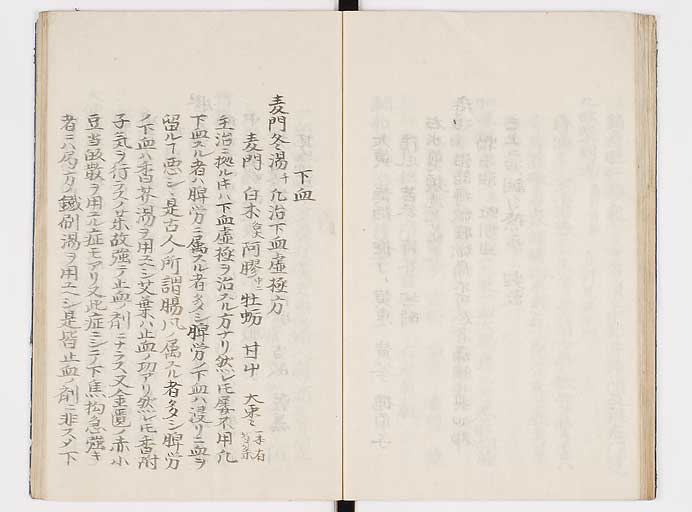 下血
麦門冬湯千 凡治下血虚極方
麦門 白朮各大 阿膠中ニ 牡蛎 甘中 大棗ミ
主治ニ拠ルキハ下血虚極ヲ治スル方ナリ然レ𪜈屡不用凡
下血スル者ハ脾労ニ属スル者多シ脾労ノ下血ハ浸リニ血ヲ
留ルヿ悪シ是古人ノ所謂腸风ノ属スル者多シ脾労
ノ下血ハ香芥湯ヲ用ユヘシ艾葉ハ止血ノ功アリ然レ𪜈香附
子気ヲ行ラスノ薬故強テ止血ノ剤ニナラス又金匱ノ赤小
豆当皈散ヲ用ユル症モアリ又此症ニシテ下焦拘急強キ
者ニハ局方ノ鐵刷湯ヲ用ユヘシ是皆止血ノ剤ニ非スメ下